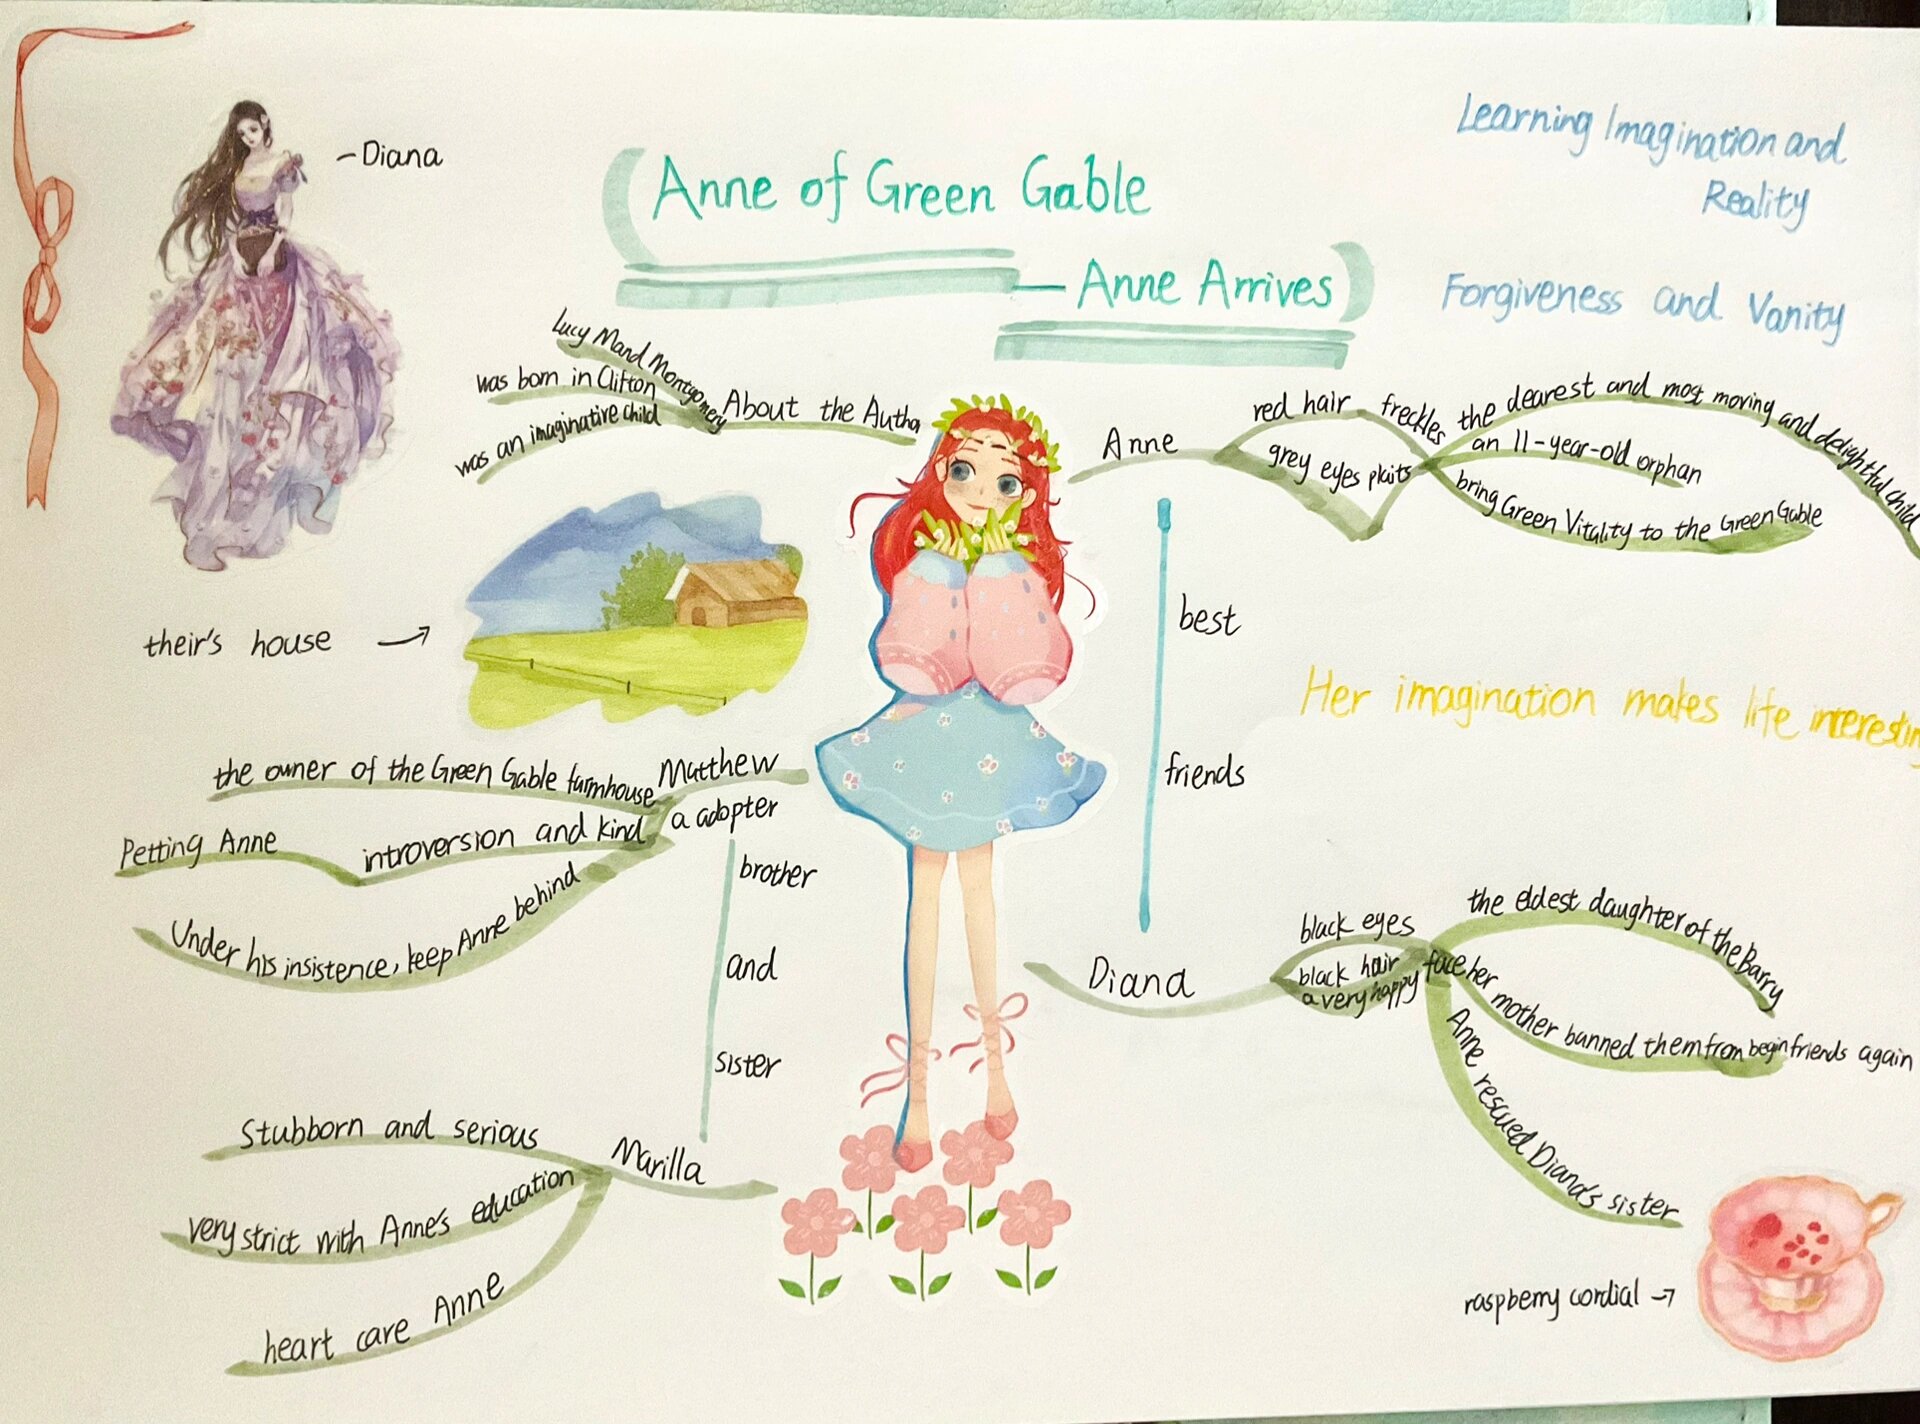 Diana
Anne of Green Gable
— Anne Arrives
Learning Imagination and
Reality
Forgiveness and Vanity
About the Autho
Lucy Mand Montgomery
was born in Clifton
was an imaginative child
Anne
red hair
freckles
grey eyes plaits
the dearest and most moving and delightful child
an 11-year-old orphan
bring Green Vitality to the Green Gable
their's house →
best
friends
Her imagination makes life interestin
Matthew
a adopter
the owner of the Green Gable farmhouse
introversion and kind
Petting Anne
Under his insistence, keep Anne behind
brother
and
sister
Marilla
Stubborn and serious
very strict with Anne's education
heart care Anne
Diana
black eyes
black hair
a very happy face
the eldest daughter of the Barry
her mother banned them from begin friends again
Anne rescued Diana's sister
raspberry cordial →